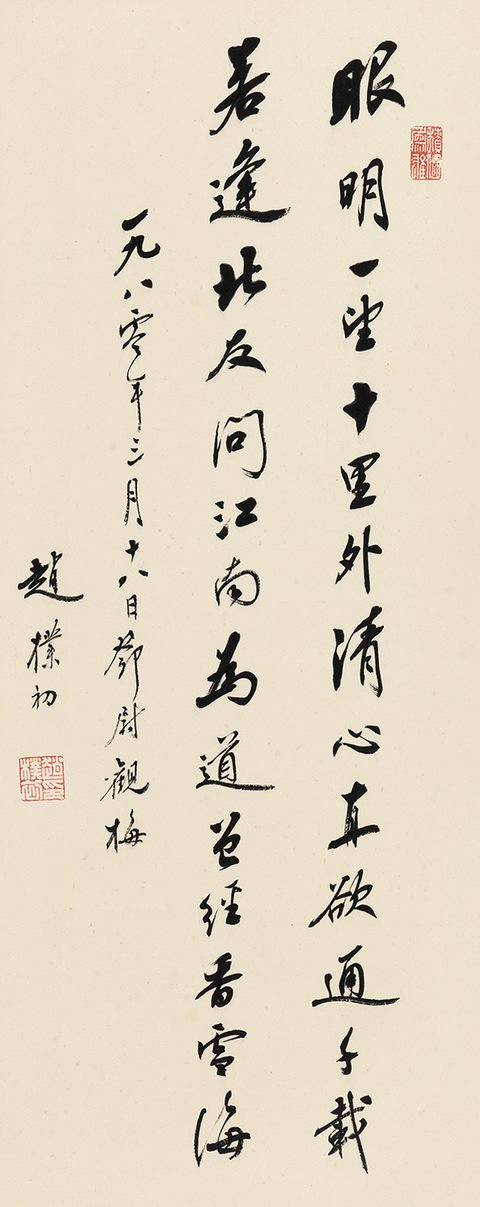 眼明一望十里外清心直欲通千載
若逢北友問江南為道曾經香雪海
一九八零年三月十八日鄧尉觀梅
趙樸初